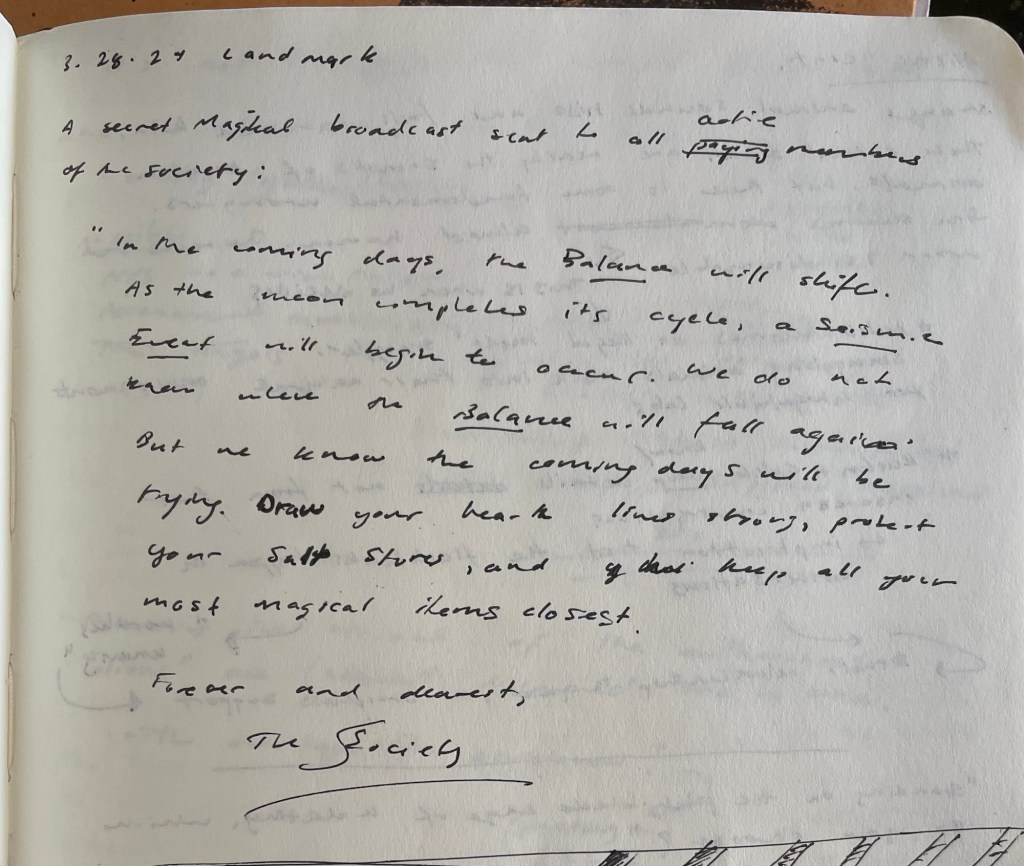 3. 28. 24 Landmark
active
A secret Magical broadcast sent to all paying members
of the Society:
"In the coming days, the Balance will shift.
As the moon completes its cycle, a Seismic
Event will begin to occur. We do not
know where the Balance will fall again.
But we know the coming days will be
trying. Draw your hearth lines strong, protect
your salt stores, and keep all your
most magical items closest.
Forever and dearest,
The Society